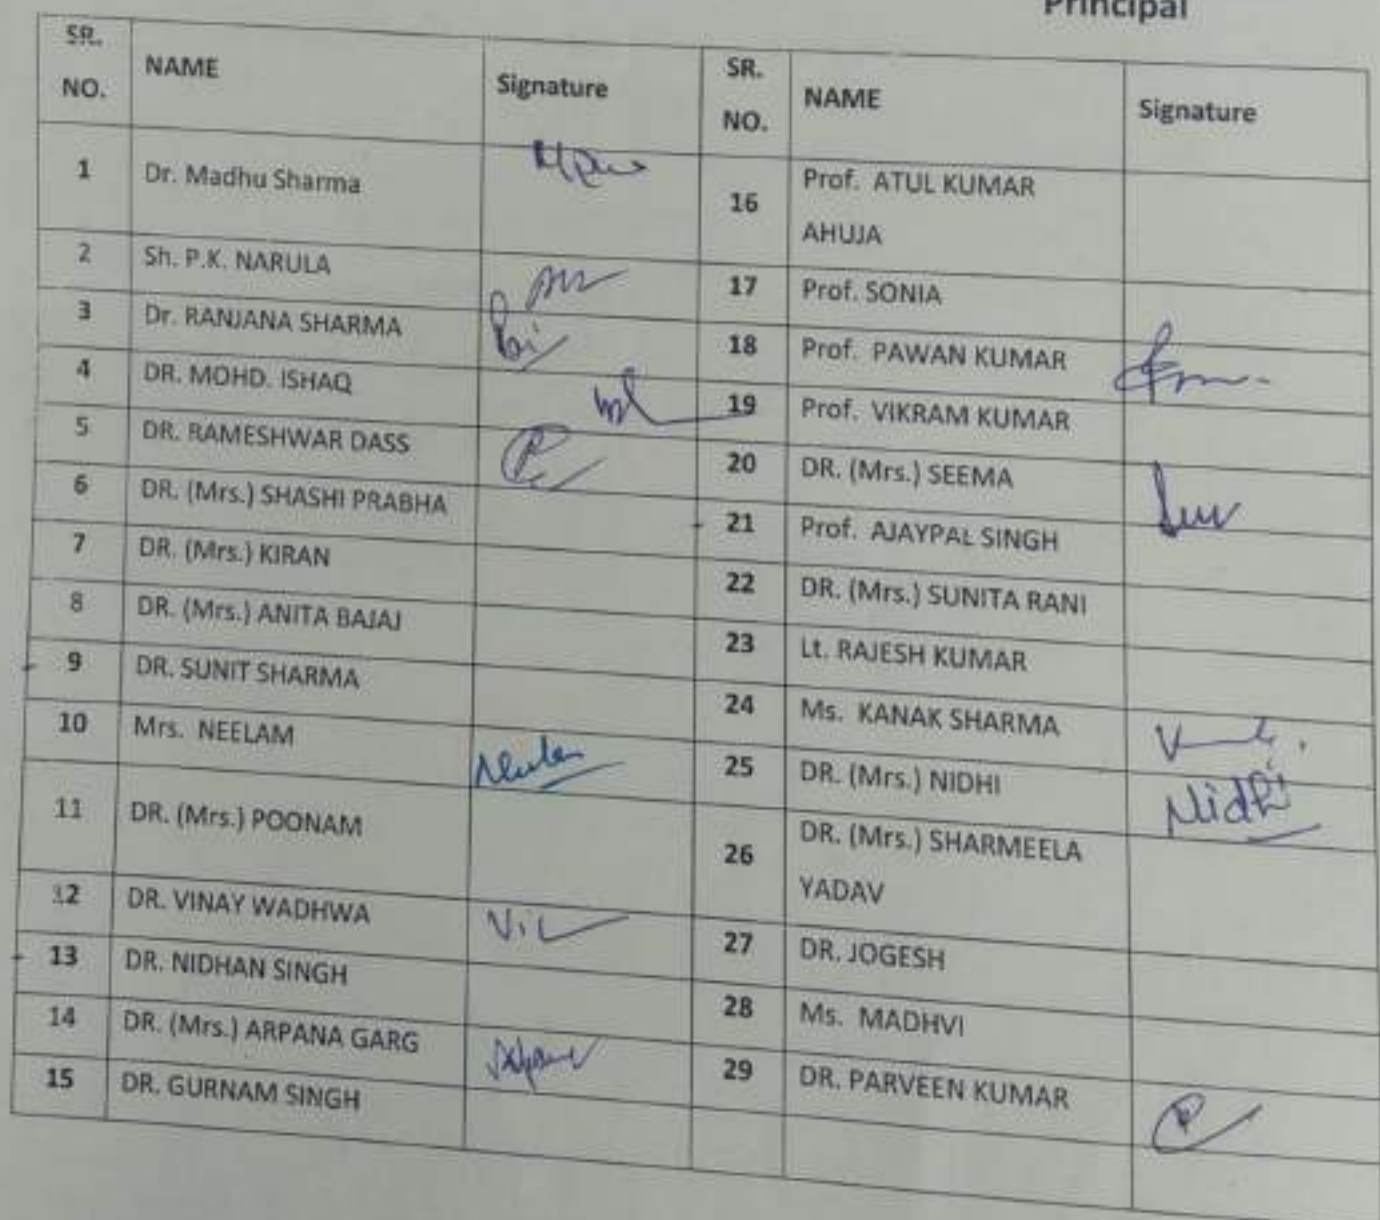 Principal
SR. NO. NAME Signature SR. NO. NAME Signature
1 Dr. Madhu Sharma 16 Prof. ATUL KUMAR AHUJA
2 Sh. P.K. NARULA 17 Prof. SONIA
3 Dr. RANJANA SHARMA 18 Prof. PAWAN KUMAR
4 DR. MOHD. ISHAQ 19 Prof. VIKRAM KUMAR
5 DR. RAMESHWAR DASS 20 DR. (Mrs.) SEEMA
6 DR. (Mrs.) SHASHI PRABHA 21 Prof. AJAYPAL SINGH
7 DR. (Mrs.) KIRAN 22 DR. (Mrs.) SUNITA RANI
8 DR. (Mrs.) ANITA BAJAJ 23 Lt. RAJESH KUMAR
9 DR. SUNIT SHARMA 24 Ms. KANAK SHARMA
10 Mrs. NEELAM 25 DR. (Mrs.) NIDHI Nidhi
11 DR. (Mrs.) POONAM 26 DR. (Mrs.) SHARMEELA YADAV
12 DR. VINAY WADHWA 27 DR. JOGESH
13 DR. NIDHAN SINGH 28 Ms. MADHVI
14 DR. (Mrs.) ARPANA GARG 29 DR. PARVEEN KUMAR
15 DR. GURNAM SINGH